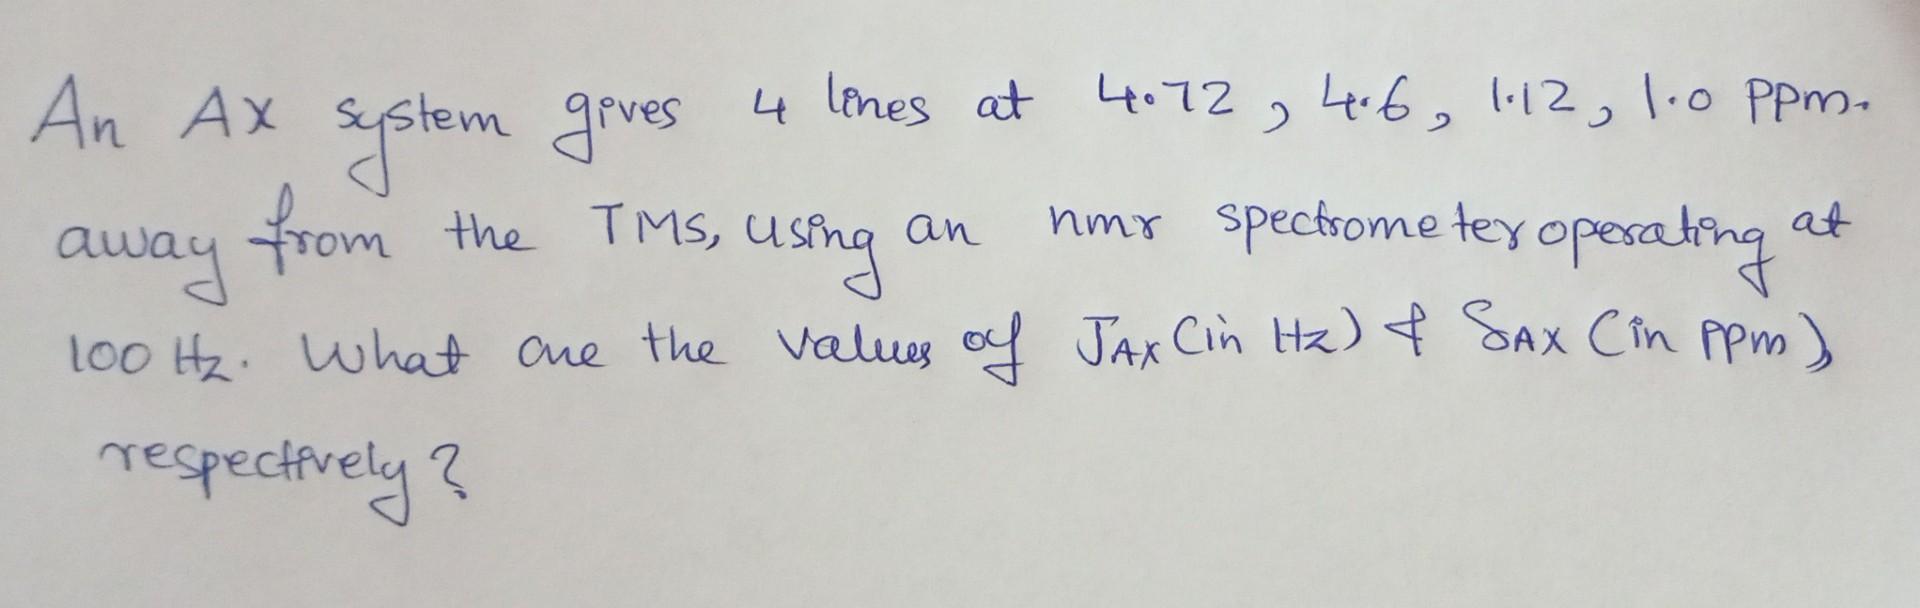 An AX system gives 4 lines at 4.72, 4.6, 1.12, 1.0 ppm.
away from the TMS, using an nmr spectrometer operating at
100 Hz. What are the values of JAX (in Hz) & δAX (in ppm),
respectively?